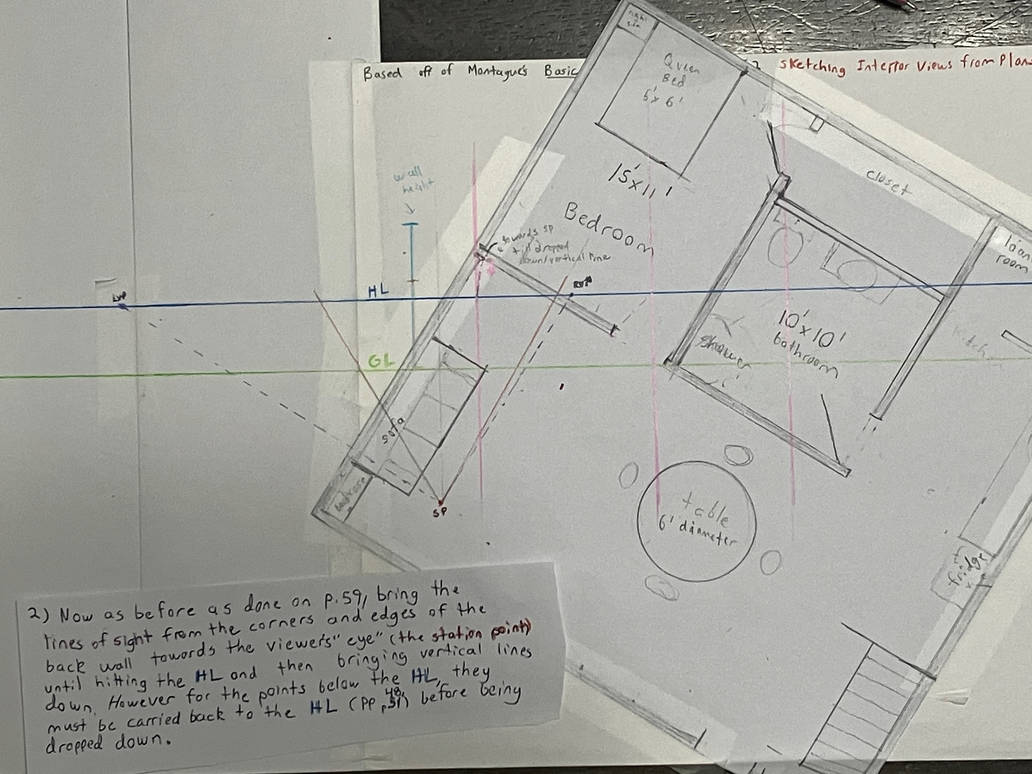 Based off of Montague's Basic
Sketching Interior Views from Plan
night
Queen
Bed
5'x6'
15'x11'
Bedroom
wall
height
towards SP
till dropped
down/vertical line
closet
room
HL
LVP
RVP
GL
10'x10'
bathroom
shower
sofa
SP
table
6' diameter
fridge
2) Now as before as done on p.59, bring the
lines of sight from the corners and edges of the
back wall towards the viewer's "eye" (the station point)
until hitting the HL and then bringing vertical lines
down. However for the points below the HL, they
must be carried back to the HL (PP, 48, 51) before being
dropped down.